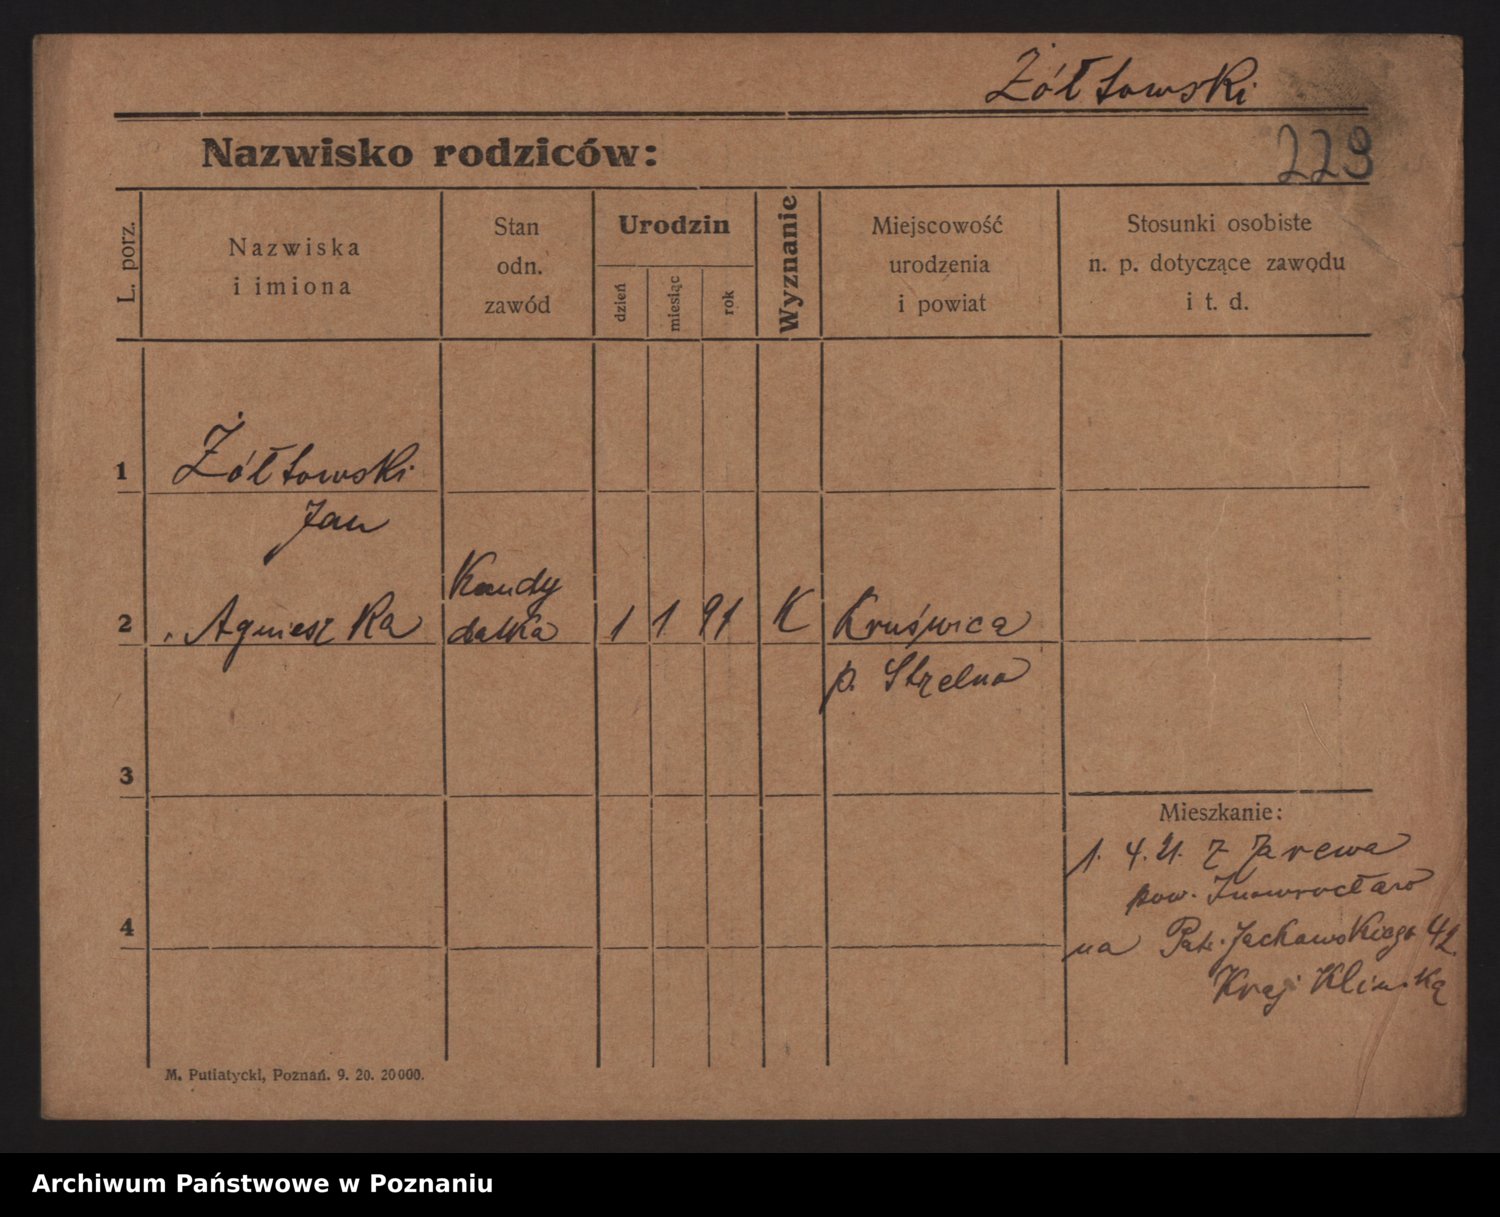 Żółtowski
Nazwisko rodziców:
223
L. porz.
Nazwiska
i imiona
Stan
odn.
zawód
Urodzin
dzień
miesiąc
rok
Wyznanie
Miejscowość
urodzenia
i powiat
Stosunki osobiste
n. p. dotyczące zawodu
i t. d.
1
Żółtowski
Jan
2
Agnieszka
Kandy
datka
1 1 91
K
Kruświca
p. Strzelno
3
4
Mieszkanie:
1. 4. 21. z
pow. Inowrocław
na Patr. Jackowskiego 42
M. Putiatycki, Poznań. 9. 20. 20000.
Archiwum Państwowe w Poznaniu